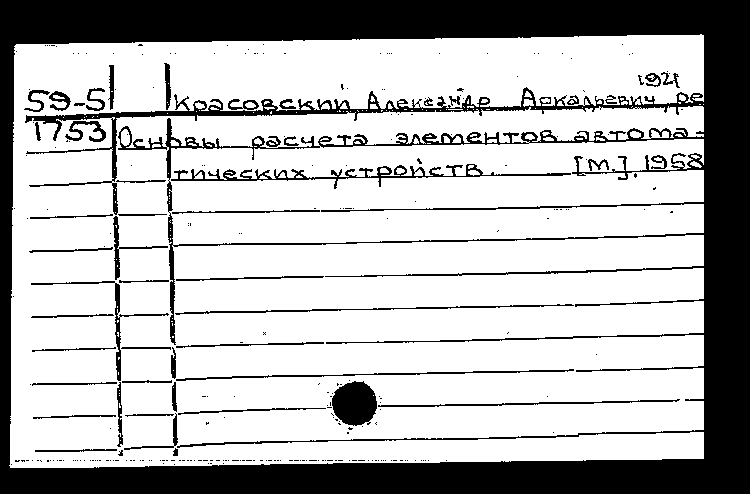 1921
59-5 Красовский, Александр Аркадьевич, ре
1753 Основы расчета элементов автома-
тических устройств. [М.], 1968